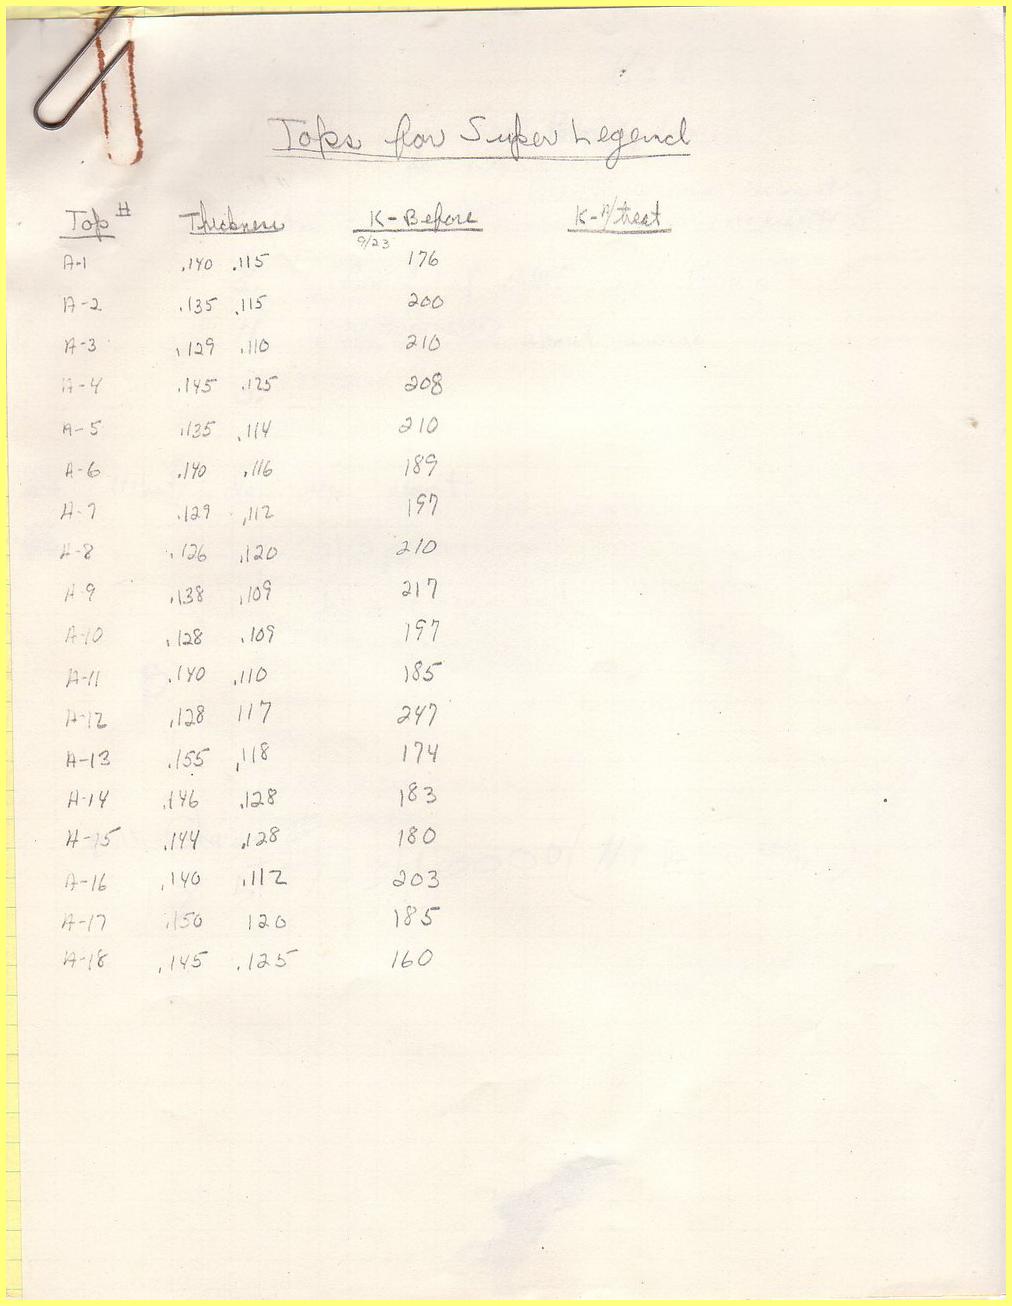 Tops for Super Legend
Top # Thickness K-Before K-A/treat
9/23
A-1 .140 .115 176
A-2 .135 .115 200
A-3 .129 .110 210
A-4 .145 .125 208
A-5 .135 .114 210
A-6 .140 .116 189
A-7 .129 .112 197
A-8 .126 .120 210
A-9 .138 .109 217
A-10 .128 .109 197
A-11 .140 .110 185
A-12 .128 117 247
A-13 .155 .118 174
A-14 .146 .128 183
A-15 .144 .128 180
A-16 .140 .112 203
A-17 .150 120 185
A-18 .145 .125 160